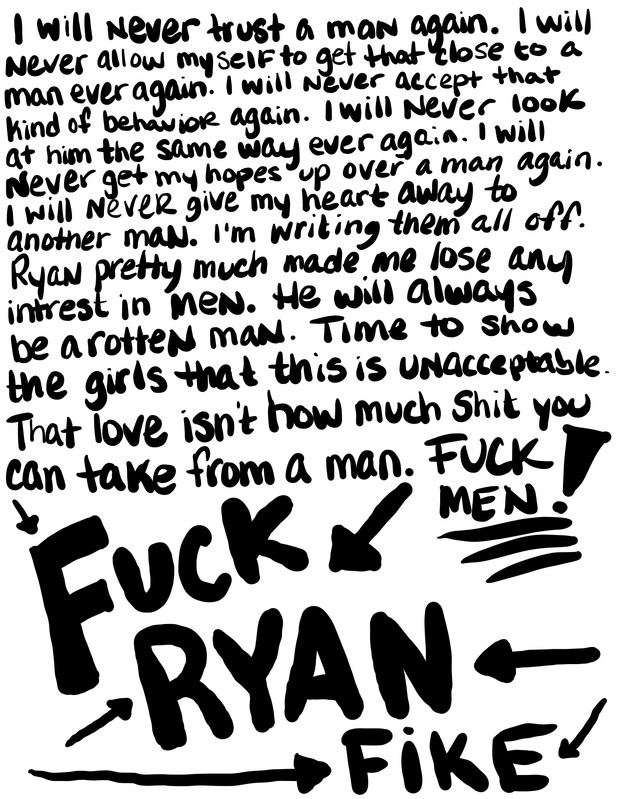 I will never trust a man again. I will
never allow myself to get that close to a
man ever again. I will never accept that
kind of behavior again. I will never look
at him the same way ever again. I will
never get my hopes up over a man again.
I will never give my heart away to
another man. I'm writing them all off.
Ryan pretty much made me lose any
intrest in men. He will always
be a rotten man. Time to show
the girls that this is unacceptable.
That love isn't how much shit you
can take from a man. FUCK
MEN!
FUCK
RYAN
FiKE